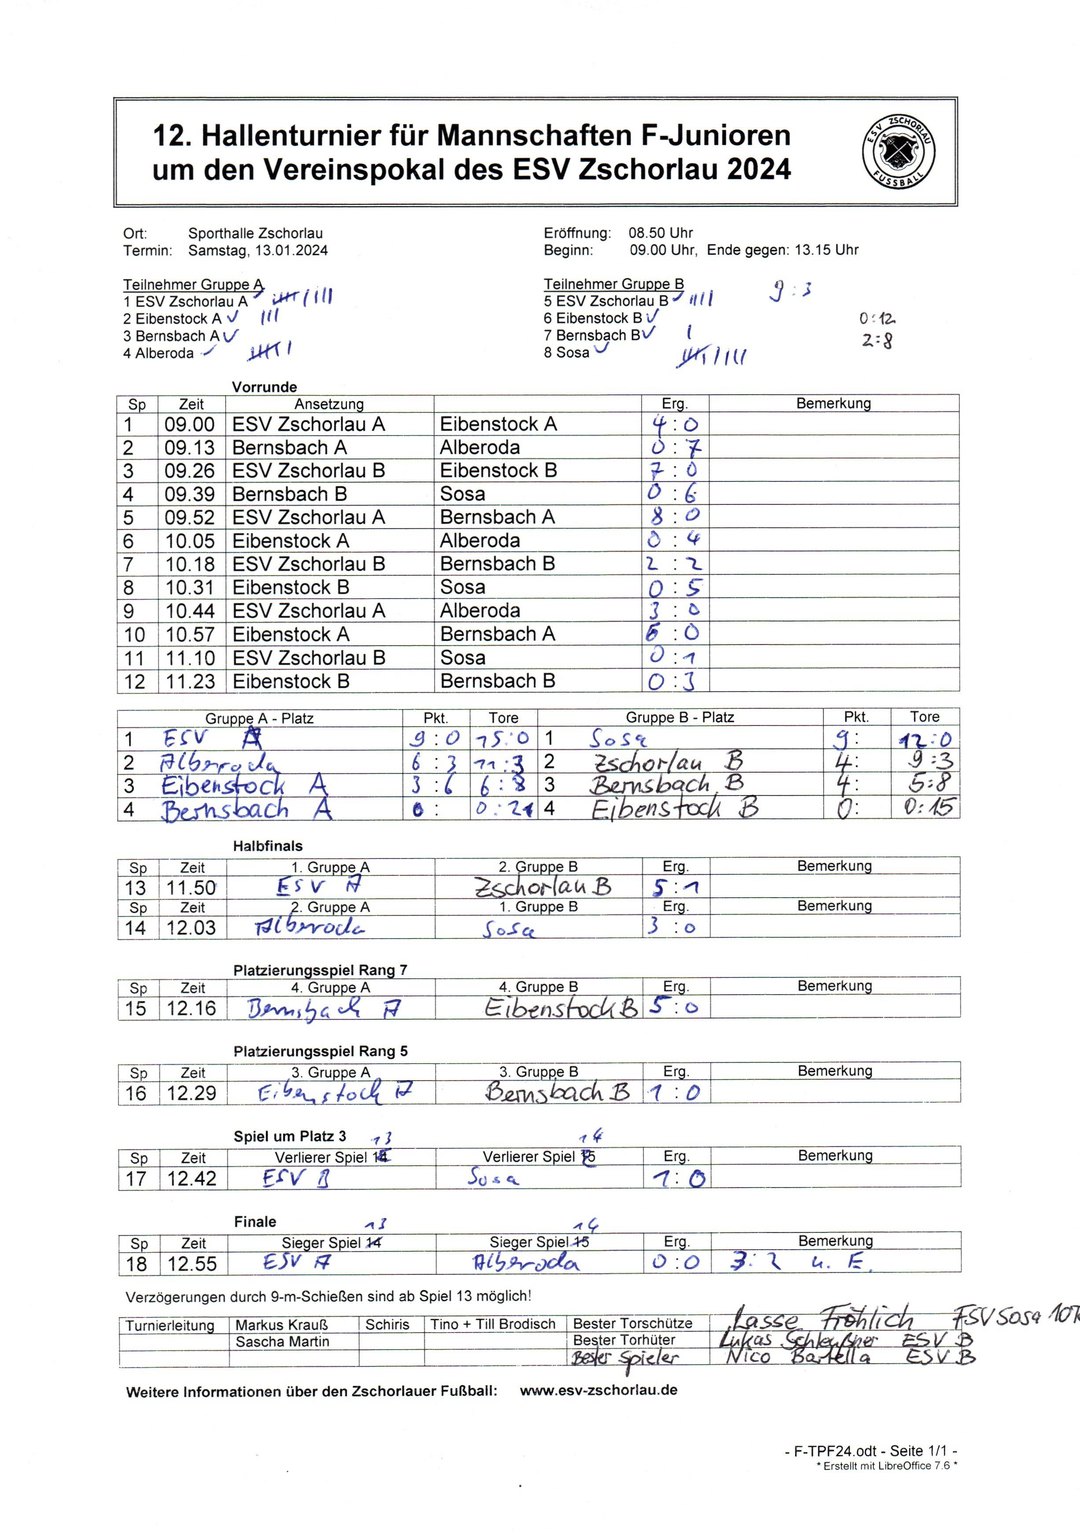 12. Hallenturnier für Mannschaften F-Junioren
um den Vereinspokal des ESV Zschorlau 2024
ESV ZSCHORLAU
FUSSBALL
Ort: Sporthalle Zschorlau Eröffnung: 08.50 Uhr
Termin: Samstag, 13.01.2024 Beginn: 09.00 Uhr, Ende gegen: 13.15 Uhr
Teilnehmer Gruppe A Teilnehmer Gruppe B 9:3
1 ESV Zschorlau A 5 ESV Zschorlau B
2 Eibenstock A 6 Eibenstock B 0:12
3 Bernsbach A 7 Bernsbach B 2:8
4 Alberoda 8 Sosa
Vorrunde
Sp Zeit Ansetzung Erg. Bemerkung
1 09.00 ESV Zschorlau A Eibenstock A 4:0
2 09.13 Bernsbach A Alberoda 0:7
3 09.26 ESV Zschorlau B Eibenstock B 7:0
4 09.39 Bernsbach B Sosa 0:6
5 09.52 ESV Zschorlau A Bernsbach A 8:0
6 10.05 Eibenstock A Alberoda 0:4
7 10.18 ESV Zschorlau B Bernsbach B 2:2
8 10.31 Eibenstock B Sosa 0:5
9 10.44 ESV Zschorlau A Alberoda 3:0
10 10.57 Eibenstock A Bernsbach A 6:0
11 11.10 ESV Zschorlau B Sosa 0:1
12 11.23 Eibenstock B Bernsbach B 0:3
Gruppe A - Platz Pkt. Tore Gruppe B - Platz Pkt. Tore
1 ESV A 9:0 15:0 1 Sosa 9: 12:0
2 Alberoda 6:3 11:3 2 Zschorlau B 4: 9:3
3 Eibenstock A 3:6 6:8 3 Bernsbach B 4: 5:8
4 Bernsbach A 0: 0:21 4 Eibenstock B 0: 0:15
Halbfinals
Sp Zeit 1. Gruppe A 2. Gruppe B Erg. Bemerkung
13 11.50 ESV A Zschorlau B 5:1
Sp Zeit 2. Gruppe A 1. Gruppe B Erg. Bemerkung
14 12.03 Alberoda Sosa 3:0
Platzierungsspiel Rang 7
Sp Zeit 4. Gruppe A 4. Gruppe B Erg. Bemerkung
15 12.16 Bernsbach A Eibenstock B 5:0
Platzierungsspiel Rang 5
Sp Zeit 3. Gruppe A 3. Gruppe B Erg. Bemerkung
16 12.29 Eibenstock A Bernsbach B 1:0
Spiel um Platz 3 13 14
Sp Zeit Verlierer Spiel 14 Verlierer Spiel 15 Erg. Bemerkung
17 12.42 ESV B Sosa 1:0
Finale 13 14
Sp Zeit Sieger Spiel 14 Sieger Spiel 15 Erg. Bemerkung
18 12.55 ESV A Alberoda 0:0 3:2 n. E.
Verzögerungen durch 9-m-Schießen sind ab Spiel 13 möglich!
Turnierleitung Markus Krauß Schiris Tino + Till Brodisch Bester Torschütze Lasse Fröhlich FSV Sosa
Sascha Martin Bester Torhüter Lukas ESV B
Bester Spieler Nico Bartella ESV B
Weitere Informationen über den Zschorlauer Fußball: www.esv-zschorlau.de
- F-TPF24.odt - Seite 1/1 -
* Erstellt mit LibreOffice 7.6 *